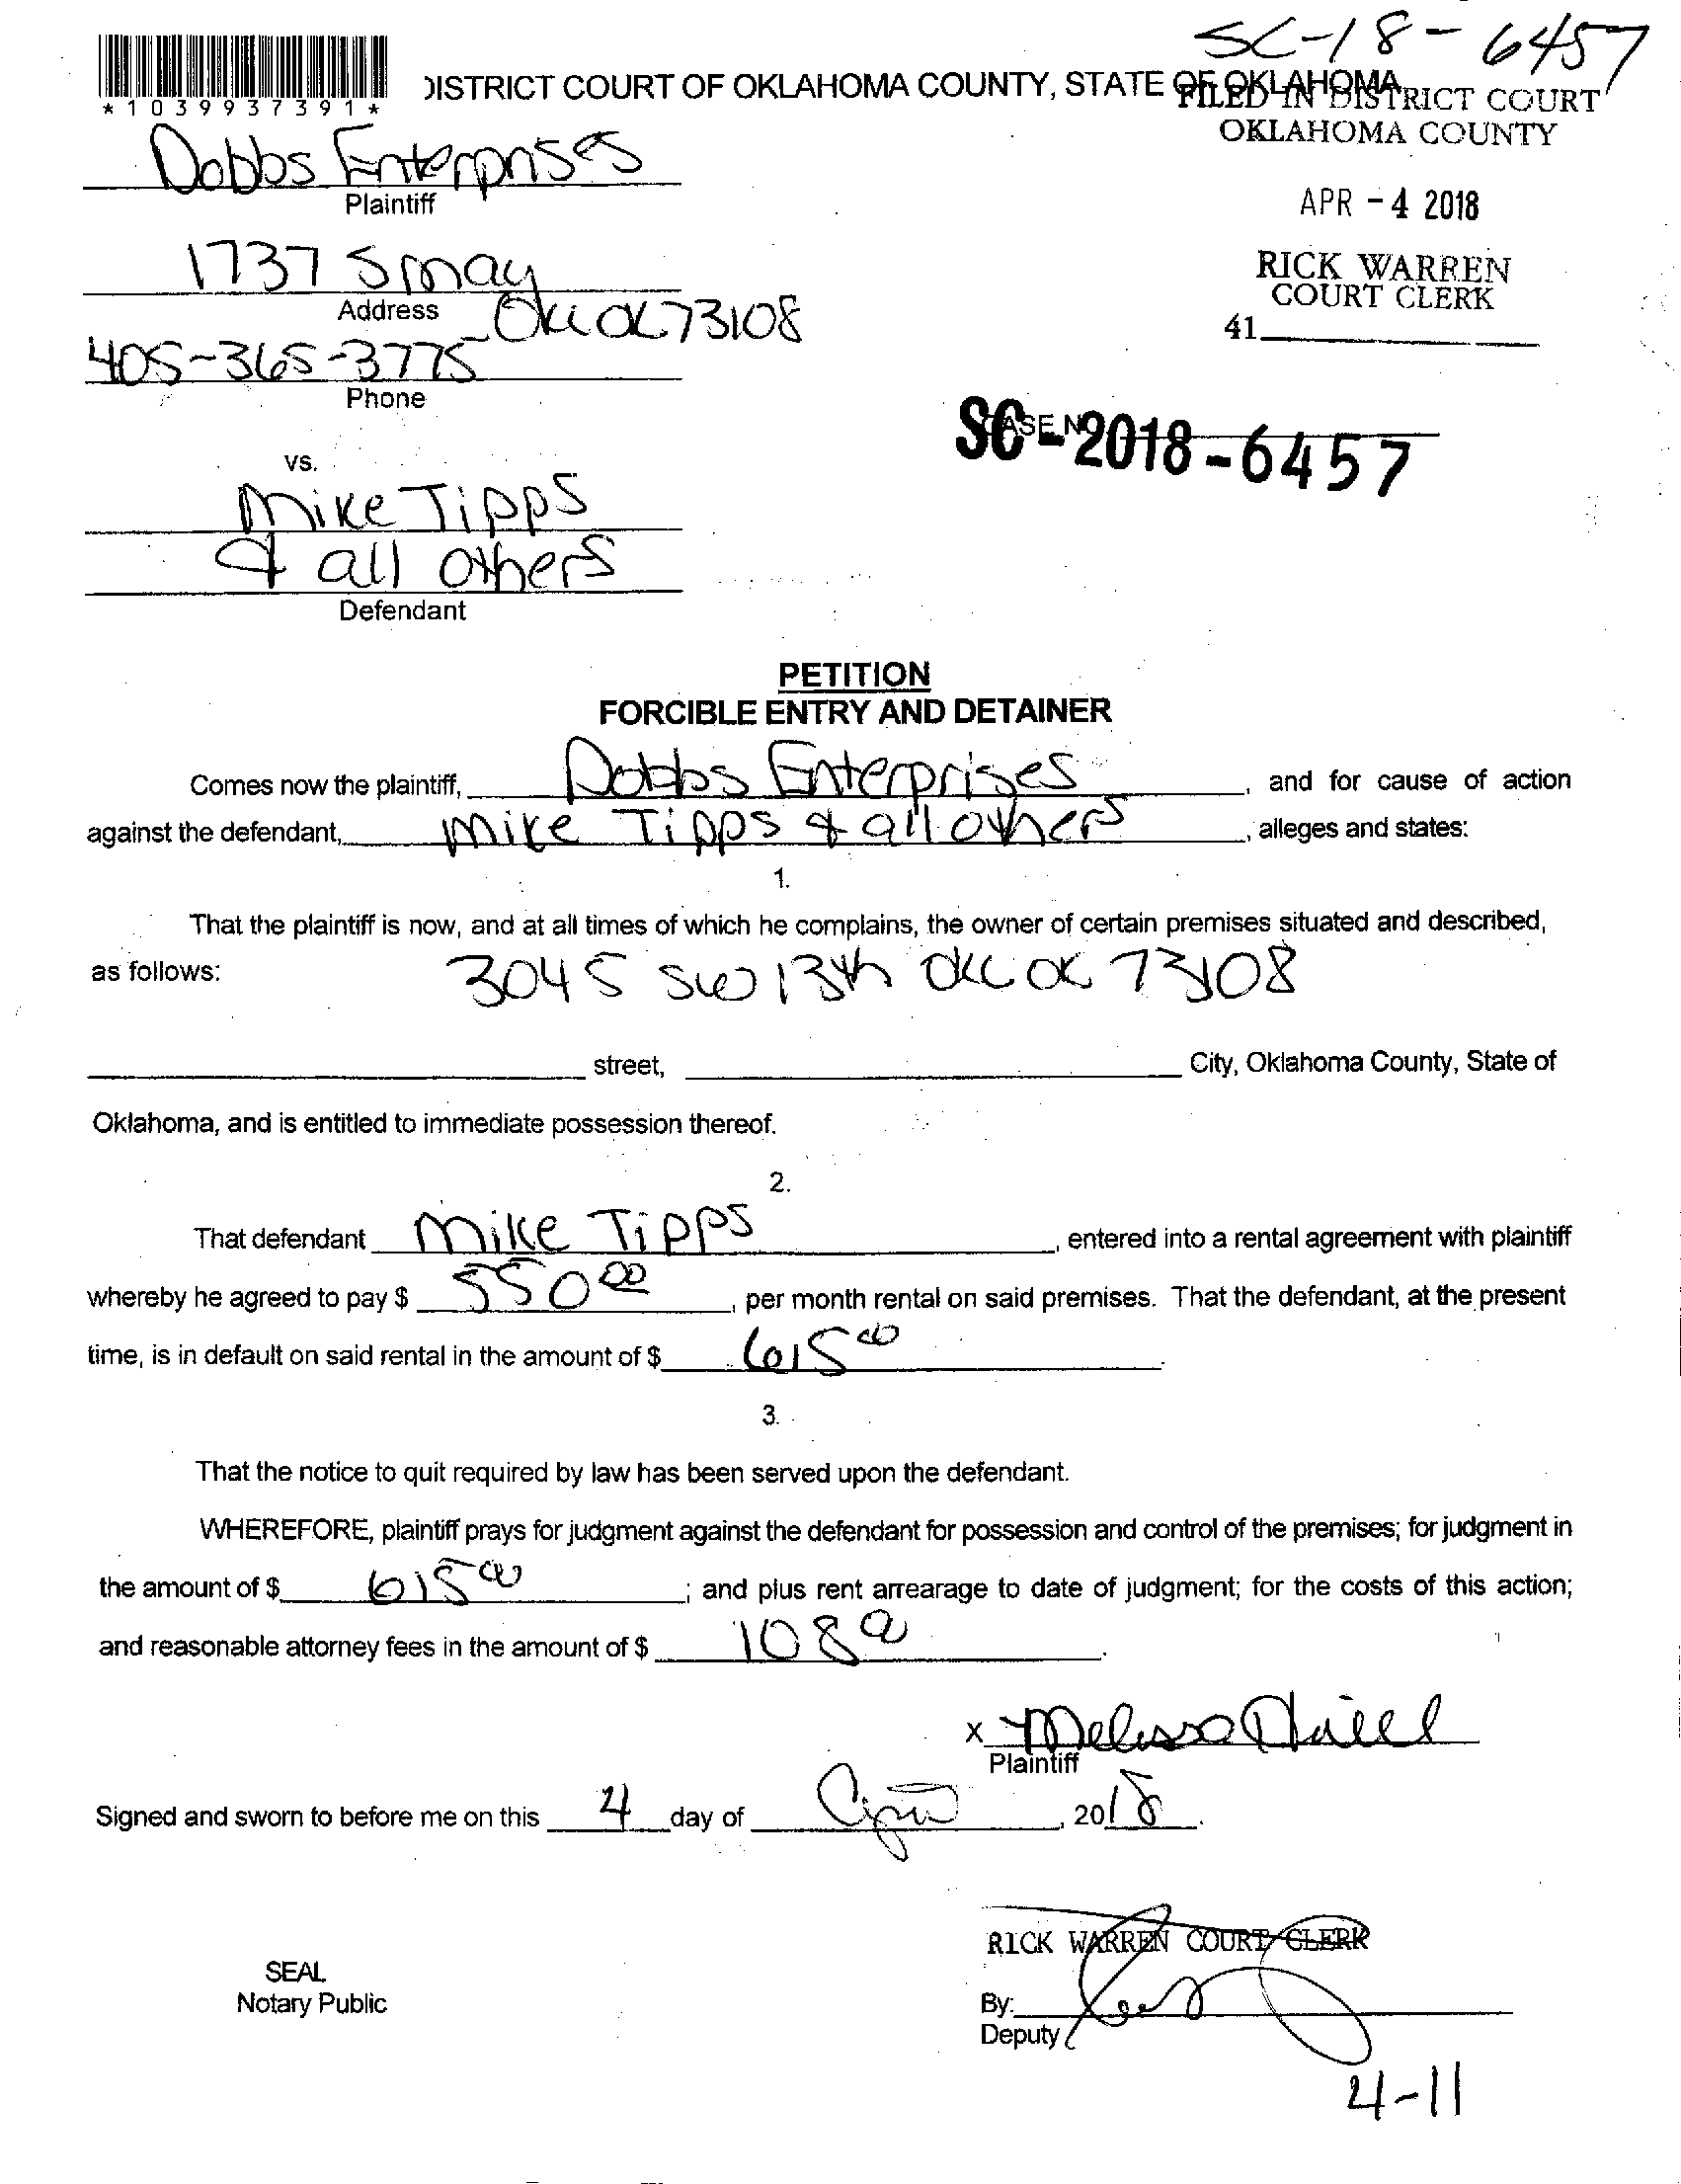 SC-18-6457
*1039937391*
DISTRICT COURT OF OKLAHOMA COUNTY, STATE OF OKLAHOMA
FILED IN DISTRICT COURT
OKLAHOMA COUNTY
Dobbs Enterprises
Plaintiff
APR -4 2018
1737 S May
RICK WARREN
COURT CLERK
Address
OKC OK 73108
41
405-365-3775
Phone
CASE NO.
SC-2018-6457
vs.
Mike Tipps
& all others
Defendant
PETITION
FORCIBLE ENTRY AND DETAINER
Comes now the plaintiff, Dobbs Enterprises, and for cause of action
against the defendant, Mike Tipps & all others, alleges and states:
1.
That the plaintiff is now, and at all times of which he complains, the owner of certain premises situated and described,
as follows: 3045 SW 13th OKC OK 73108
street, City, Oklahoma County, State of
Oklahoma, and is entitled to immediate possession thereof.
2.
That defendant Mike Tipps, entered into a rental agreement with plaintiff
whereby he agreed to pay $ 550 00, per month rental on said premises. That the defendant, at the present
time, is in default on said rental in the amount of $ 615 00.
3.
That the notice to quit required by law has been served upon the defendant.
WHEREFORE, plaintiff prays for judgment against the defendant for possession and control of the premises; for judgment in
the amount of $ 615 00; and plus rent arrearage to date of judgment; for the costs of this action;
and reasonable attorney fees in the amount of $ 108 00.
x Melissa
Plaintiff
Signed and sworn to before me on this 4 day of April, 2018.
RICK WARREN COURT CLERK
SEAL
Notary Public
By:
Deputy
4-11